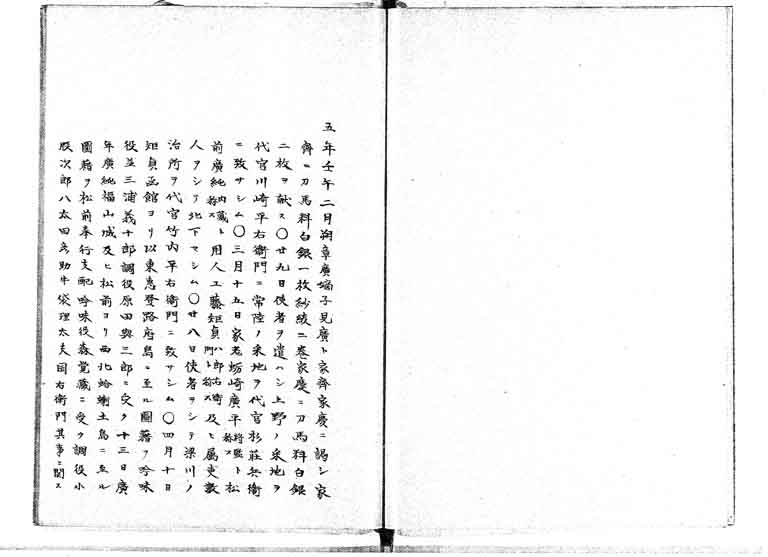 五年壬午二月朔章廣嫡子見廣ト家齊家慶ニ謁シ家
齊ニ刀馬料白銀一枚紗綾二巻家慶ニ刀馬料白銀
二枚ヲ献ス〇廿九日使者ヲ遣ハシ上野ノ采地ヲ
代官川崎平右衛門ニ常陸ノ采地ヲ代官杉莊兵衛
ニ致サシム〇三月十五日家老蛎崎廣平将監ト称ス松
前廣純内蔵ト称ス用人工藤矩貞八郎右衛門ト称ス及ヒ属吏数
人ヲシテ北下セシム〇廿八日使者ヲシテ梁川ノ
治所ヲ代官竹内平右衛門ニ致サシム〇四月十日
矩貞函館ヨリ以東恵登路府島ニ至ル圖籍ヲ吟味
役並三浦義十郎調役原田與三郎ニ受ク十三日廣
年廣純福山城及ヒ松前ヨリ西北蛤蜊土島ニ至ル
圖籍ヲ松前奉行支配吟味役森覚蔵ニ受ク調役小
股次郎八太田彦助牛袋理太夫国右衛門其事ニ関ス